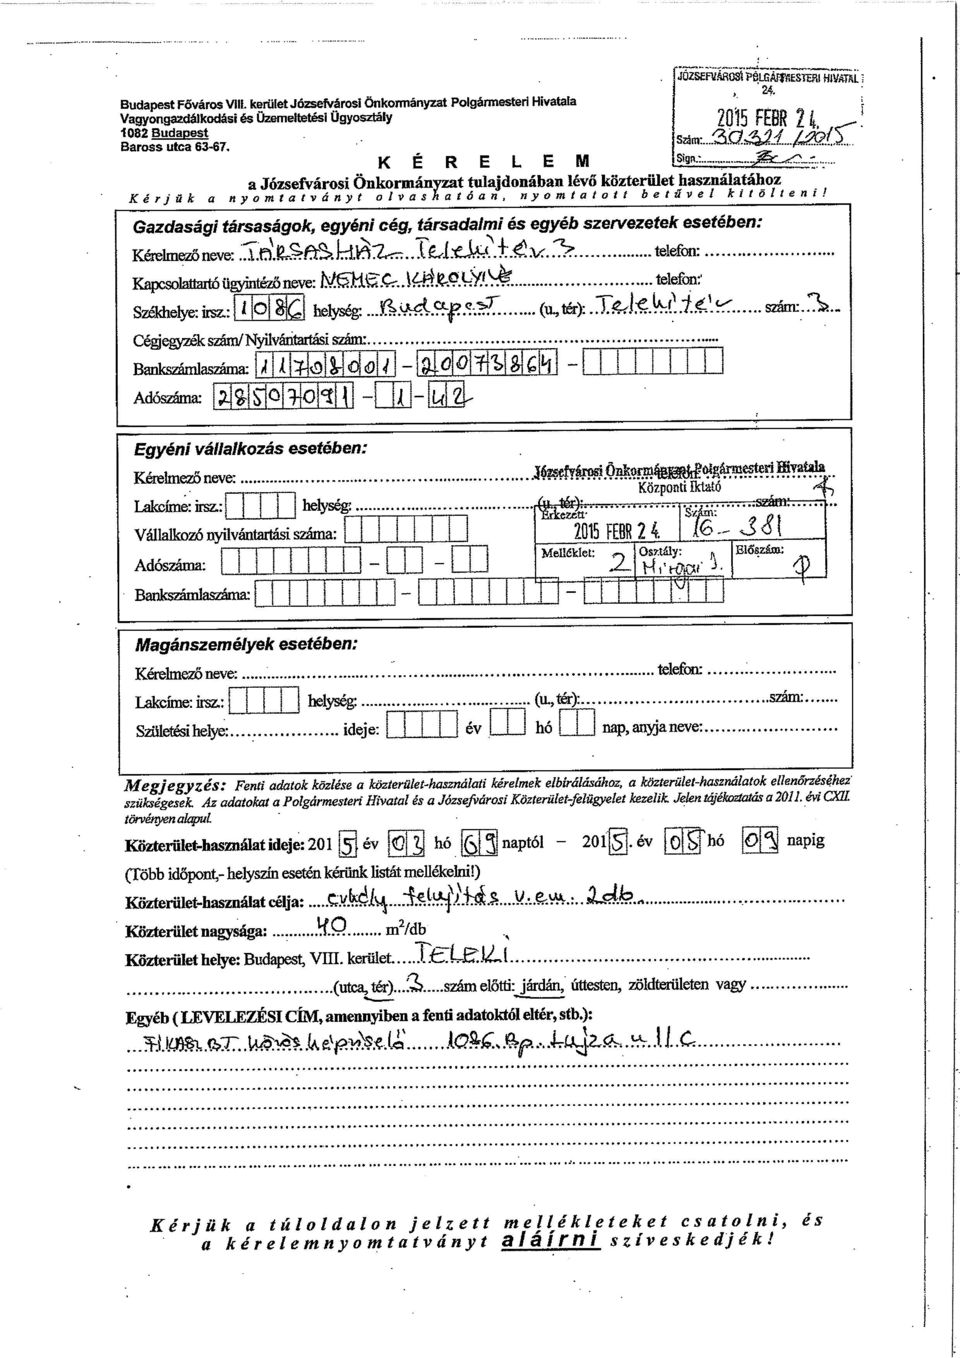 JÓZSEFVÁROSI POLGÁRMESTERI HIVATAL
24.
2015 FEBR 24.
Szám: 30.321 /2015
Sign.:
Budapest Főváros VIII. kerület Józsefvárosi Önkormányzat Polgármesteri Hivatala
Vagyongazdálkodási és Üzemeltetési Ügyosztály
1082 Budapest
Baross utca 63-67.
K É R E L E M
a Józsefvárosi Önkormányzat tulajdonában lévő közterület használatához
Kérjük a nyomtatványt olvashatóan, nyomtatott betűvel kitölteni!
Gazdasági társaságok, egyéni cég, társadalmi és egyéb szervezetek esetében:
Kérelmező neve: TÁRSASHÁZ Teleki tér 3 telefon:
Kapcsolattartó ügyintéző neve: NEMEC KÁROLYNÉ telefon:
Székhelye: irsz.: 1086 helység: Budapest (u., tér): Teleki tér szám: 3
Cégjegyzék szám/ Nyilvántartási szám:
Bankszámlaszáma: 11708001 - 20073864 -
Adószáma: 28507091 - 1 - 42
Egyéni vállalkozás esetében:
Kérelmező neve:
Józsefvárosi Önkormányzat Polgármesteri Hivatala
Központi Iktató
Lakcíme: irsz.: helység: (u., tér): szám:
Érkezett: 2015 FEBR 24. Szám: 16- 381
Vállalkozó nyilvántartási száma:
Melléklet: 2 Osztály: Előszám:
Adószáma: - -
Bankszámlaszáma: - -
Magánszemélyek esetében:
Kérelmező neve: telefon:
Lakcíme: irsz.: helység: (u., tér): szám:
Születési helye: ideje: év hó nap, anyja neve:
Megjegyzés: Fenti adatok közlése a közterület-használati kérelmek elbírálásához, a közterület-használatok ellenőrzéséhez
szükségesek. Az adatokat a Polgármesteri Hivatal és a Józsefvárosi Közterület-felügyelet kezelik. Jelen tájékoztatás a 2011. évi CXII.
törvényen alapul.
Közterület-használat ideje: 201 5 év 03 hó 09 naptól – 201 5. év 05 hó 09 napig
(Több időpont,- helyszín esetén kérünk listát mellékelni!)
Közterület-használat célja: felújítás v.em. 2db
Közterület nagysága: 40 m²/db
Közterület helye: Budapest, VIII. kerület TELEKI
(utca, tér) 3 szám előtti: járdán, úttesten, zöldterületen vagy
Egyéb ( LEVELEZÉSI CÍM, amennyiben a fenti adatoktól eltér, stb.):
közös képviselő 1086 Bp. Lujza u 11 C
Kérjük a túloldalon jelzett mellékleteket csatolni, és
a kérelemnyomtatványt aláírni szíveskedjék!